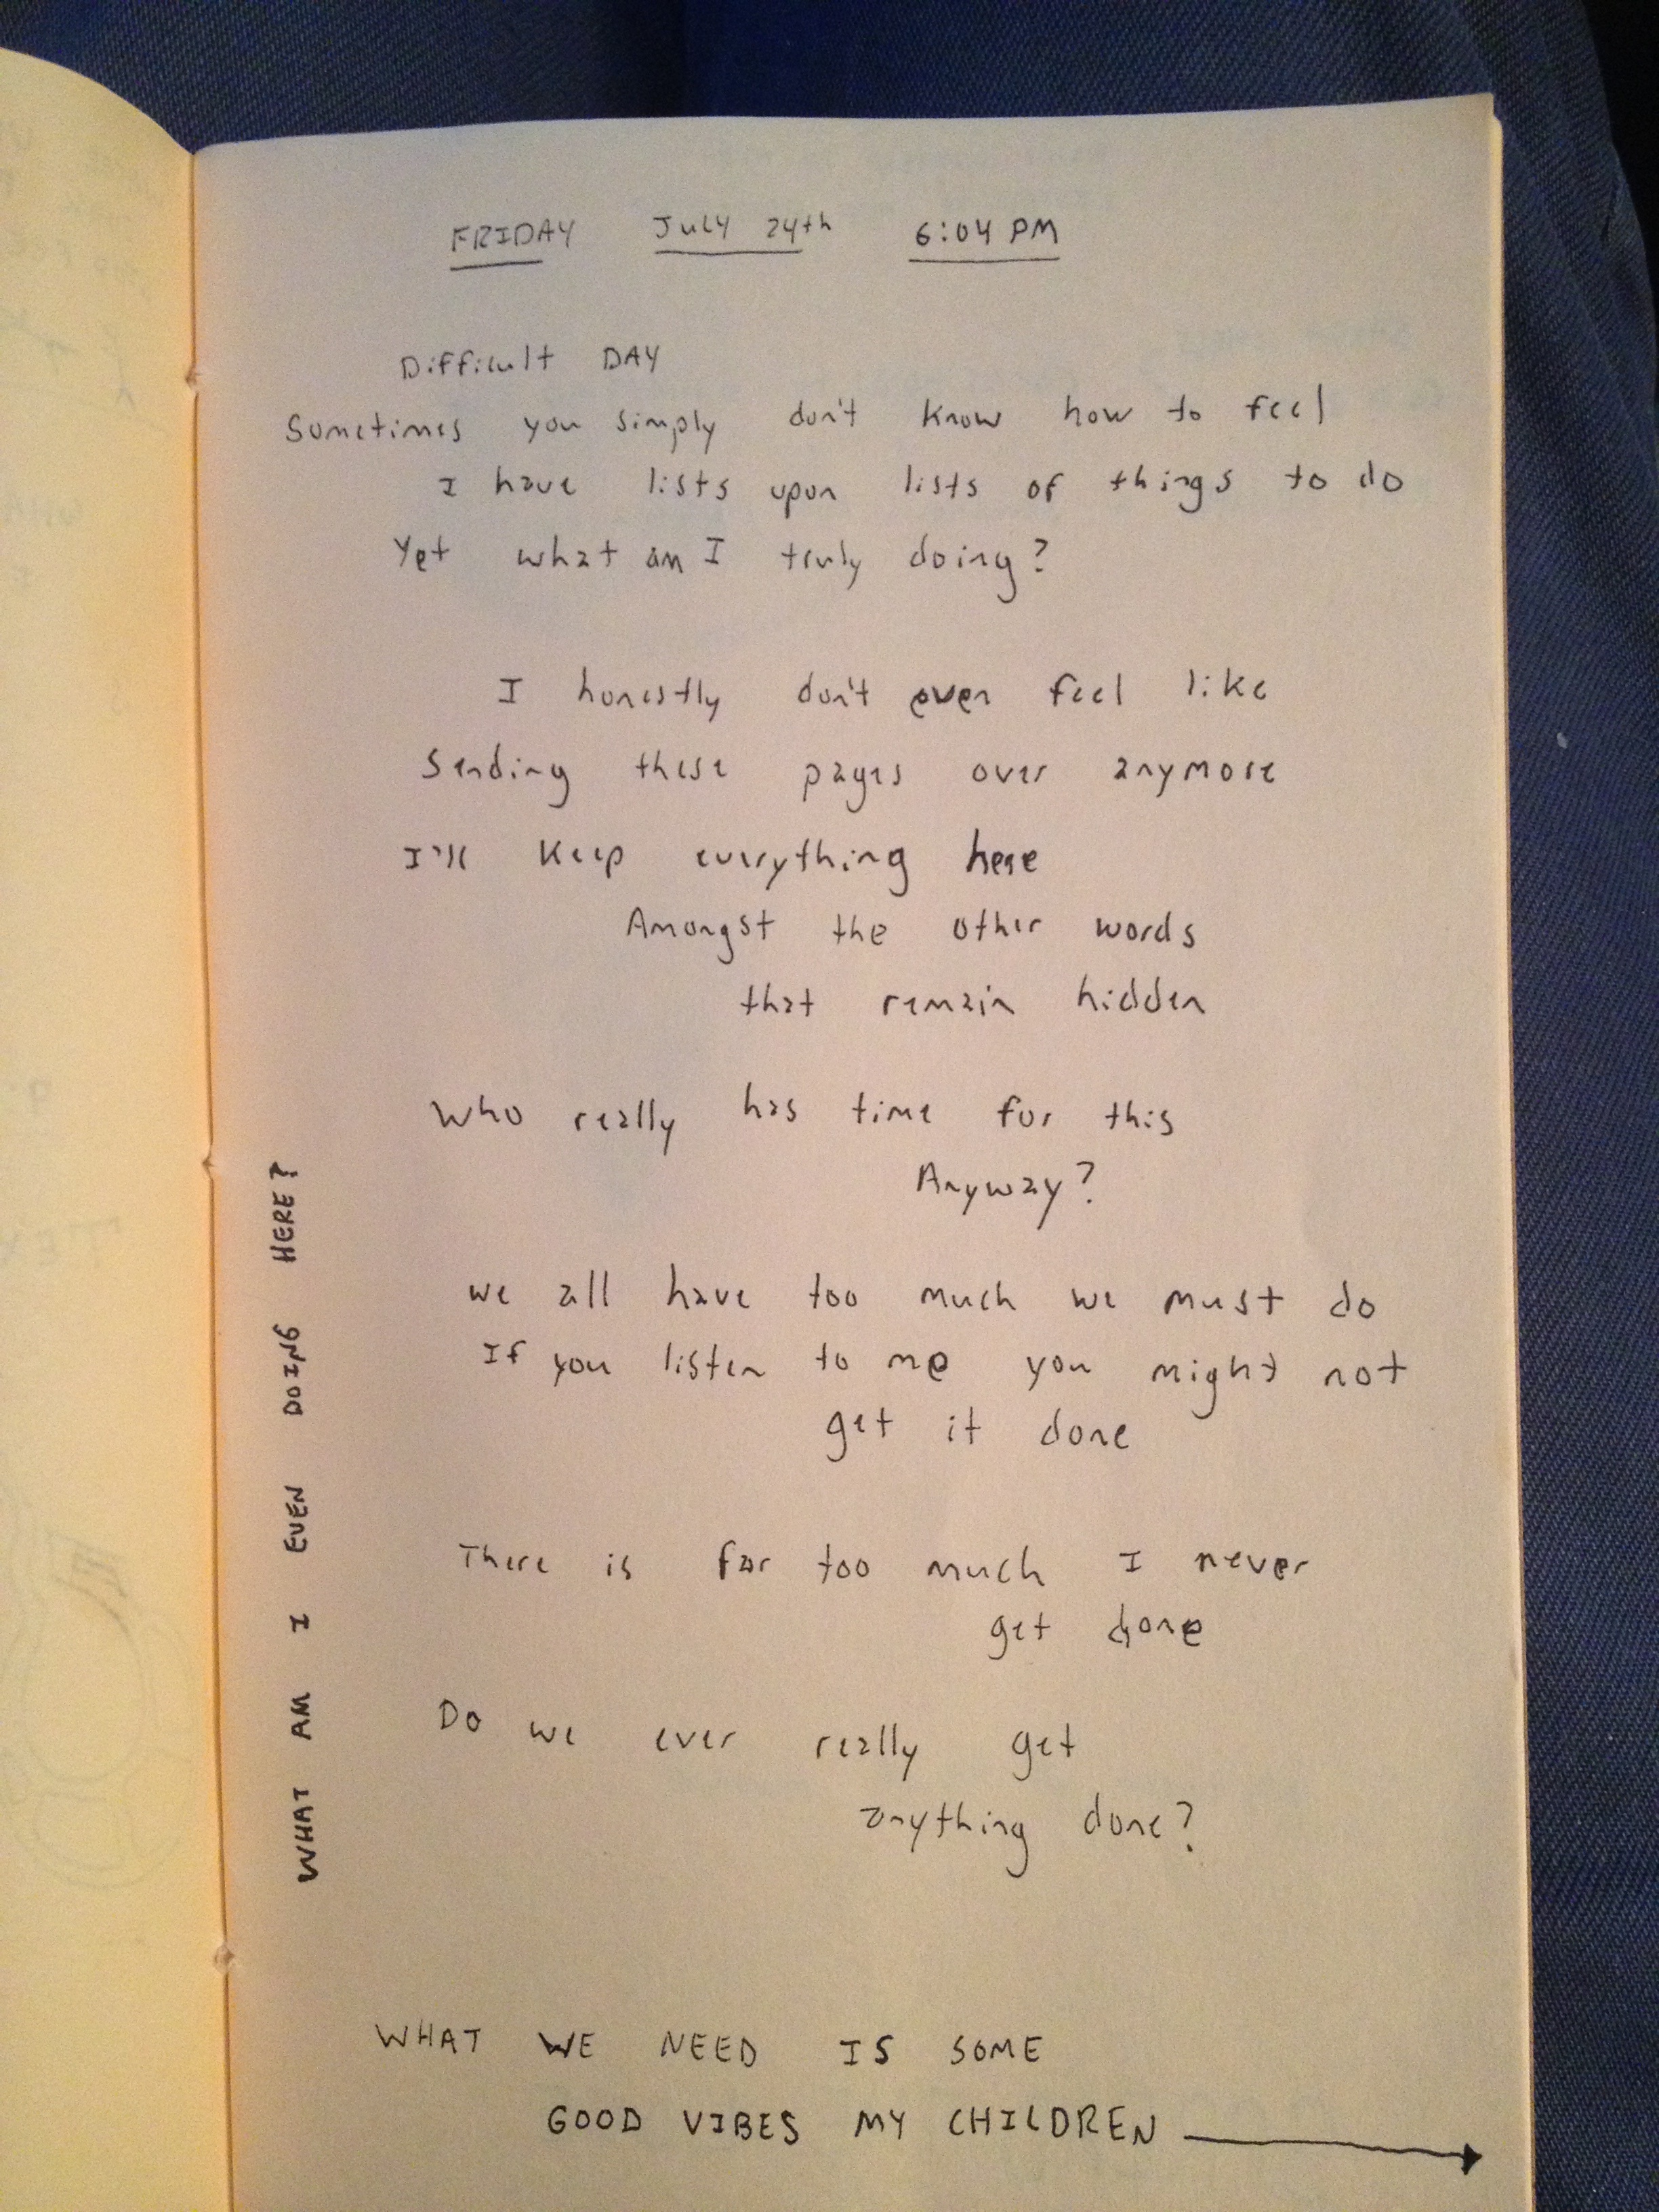 FRIDAY July 24th 6:04 PM
Difficult DAY
Sometimes you simply don't know how to feel
I have lists upon lists of things to do
Yet what am I truly doing?
I honestly don't even feel like
Sending these pages over anymore
I'll keep everything here
Amongst the other words
that remain hidden
Who really has time for this
Anyway?
we all have too much we must do
If you listen to me you might not
get it done
There is far too much I never
get done
Do we ever really get
anything done?
WHAT AM I EVEN DOING HERE?
WHAT WE NEED IS SOME
GOOD VIBES MY CHILDREN